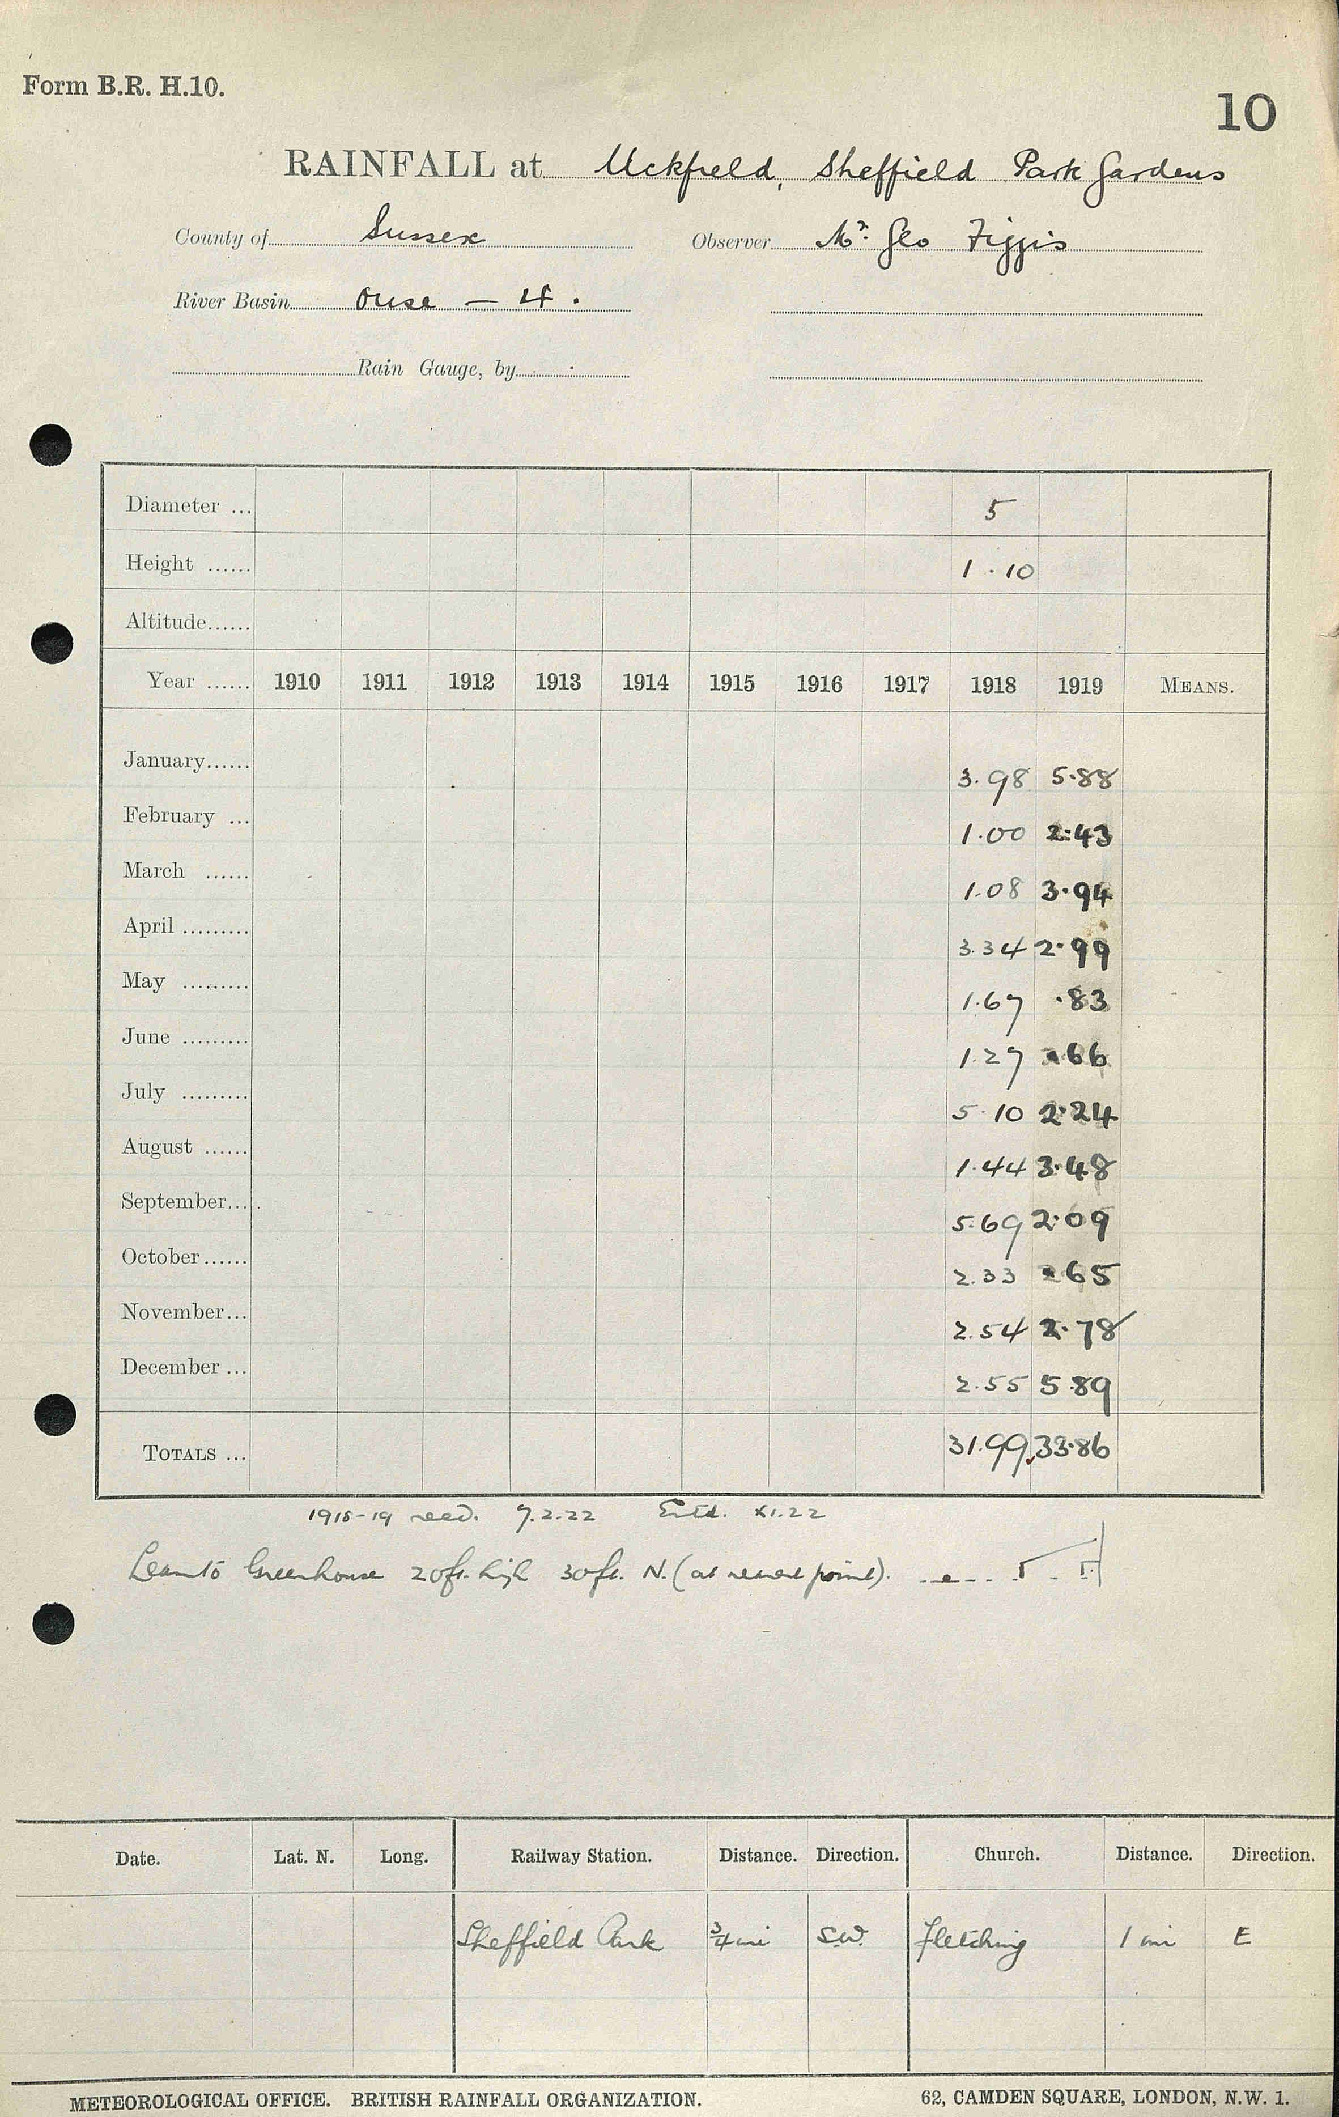 Form B.R. H.10.
10
RAINFALL at Uckfield, Sheffield Park Gardens
County of Sussex Observer Mr. Geo Figgis
River Basin Ouse — 4.
Rain Gauge, by
Diameter ... 5
Height ...... 1 . 10
Altitude......
Year ...... 1910 1911 1912 1913 1914 1915 1916 1917 1918 1919 MEANS.
January...... 3.98 5.88
February ... 1.00 2.43
March ...... 1.08 3.94
April ......... 3.34 2.99
May ......... 1.67 .83
June ......... 1.27 .66
July ......... 5.10 2.24
August ...... 1.44 3.48
September.... 5.69 2.09
October ...... 2.33 .65
November... 2.54 2.78
December ... 2.55 5.89
TOTALS ... 31.99 33.86
1918-19 recd. 7.2.22 Entd. XI.22
Lean to Greenhouse 20ft. high 30ft. N. (at nearest point).
Date. Lat. N. Long. Railway Station. Distance. Direction. Church. Distance. Direction.
Sheffield Park 3/4 mi S.W. Fletching 1 mi E
METEOROLOGICAL OFFICE. BRITISH RAINFALL ORGANIZATION. 62, CAMDEN SQUARE, LONDON, N.W. 1.